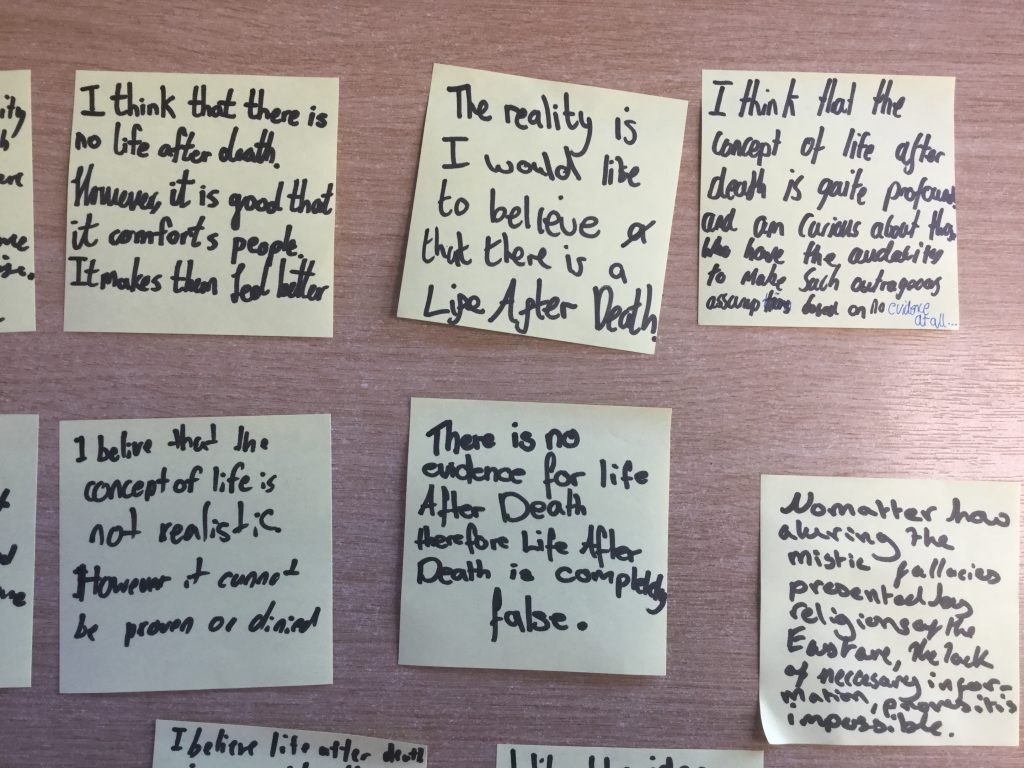 ity
I think that there is
no life after death.
However, it is good that
it comforts people.
It makes them feel better
The reality is
I would like
to believe
that there is a
Life After Death.
I think that the
concept of life after
death is quite profound
and am curious about those
who have the audacity
to make such outrageous
assumptions based on no evidence
at all...
I belive that the
concept of life is
not realistic
However it cannot
be proven or dinied
There is no
evidence for life
After Death
therefore Life After
Death is completely
false.
No matter how
aluring the
mistic fallacies
presented by
religions of the
East are, the lack
of neccesary infor-
mation, proves it is
impossible.
I believe life after death